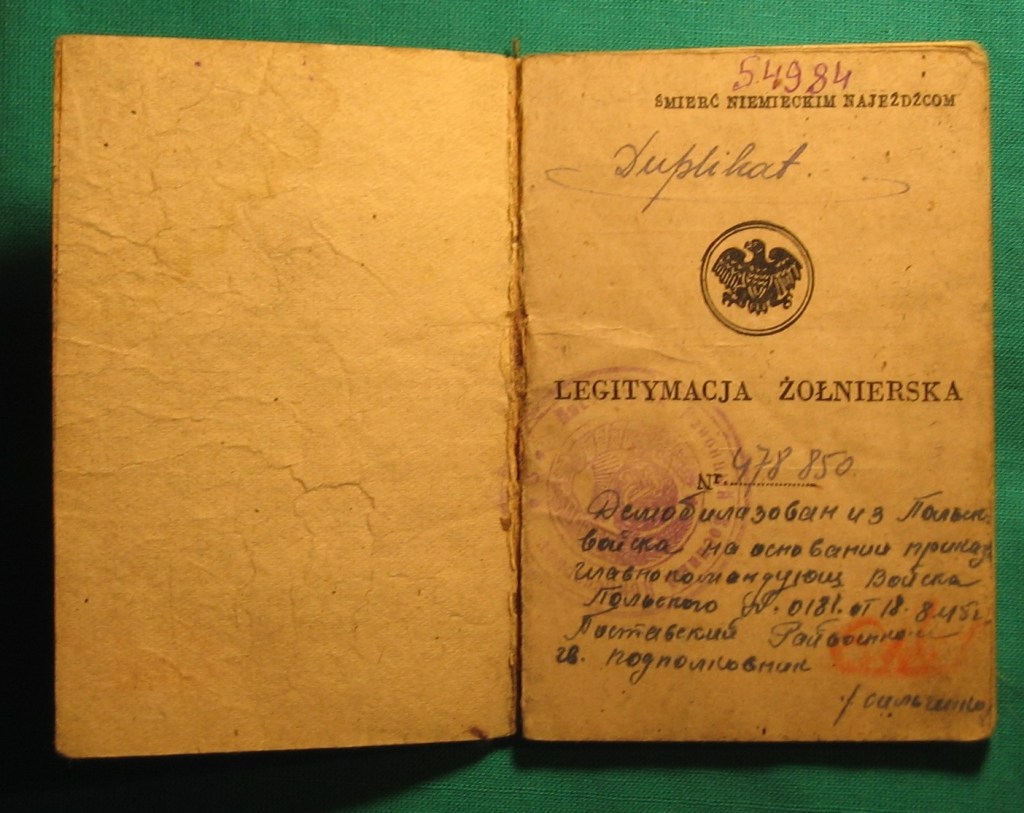 54984
ŚMIERĆ NIEMIECKIM NAJEŹDŹCOM
Duplikat.
LEGITYMACJA ŻOŁNIERSKA
Nr. 478 850.
Демобилазован из Польск.
войска на основании приказ
главнокомандующ Войска
Польского 0181 от 18.8.45г.
Поставский Райвоенком
гв. подполковник